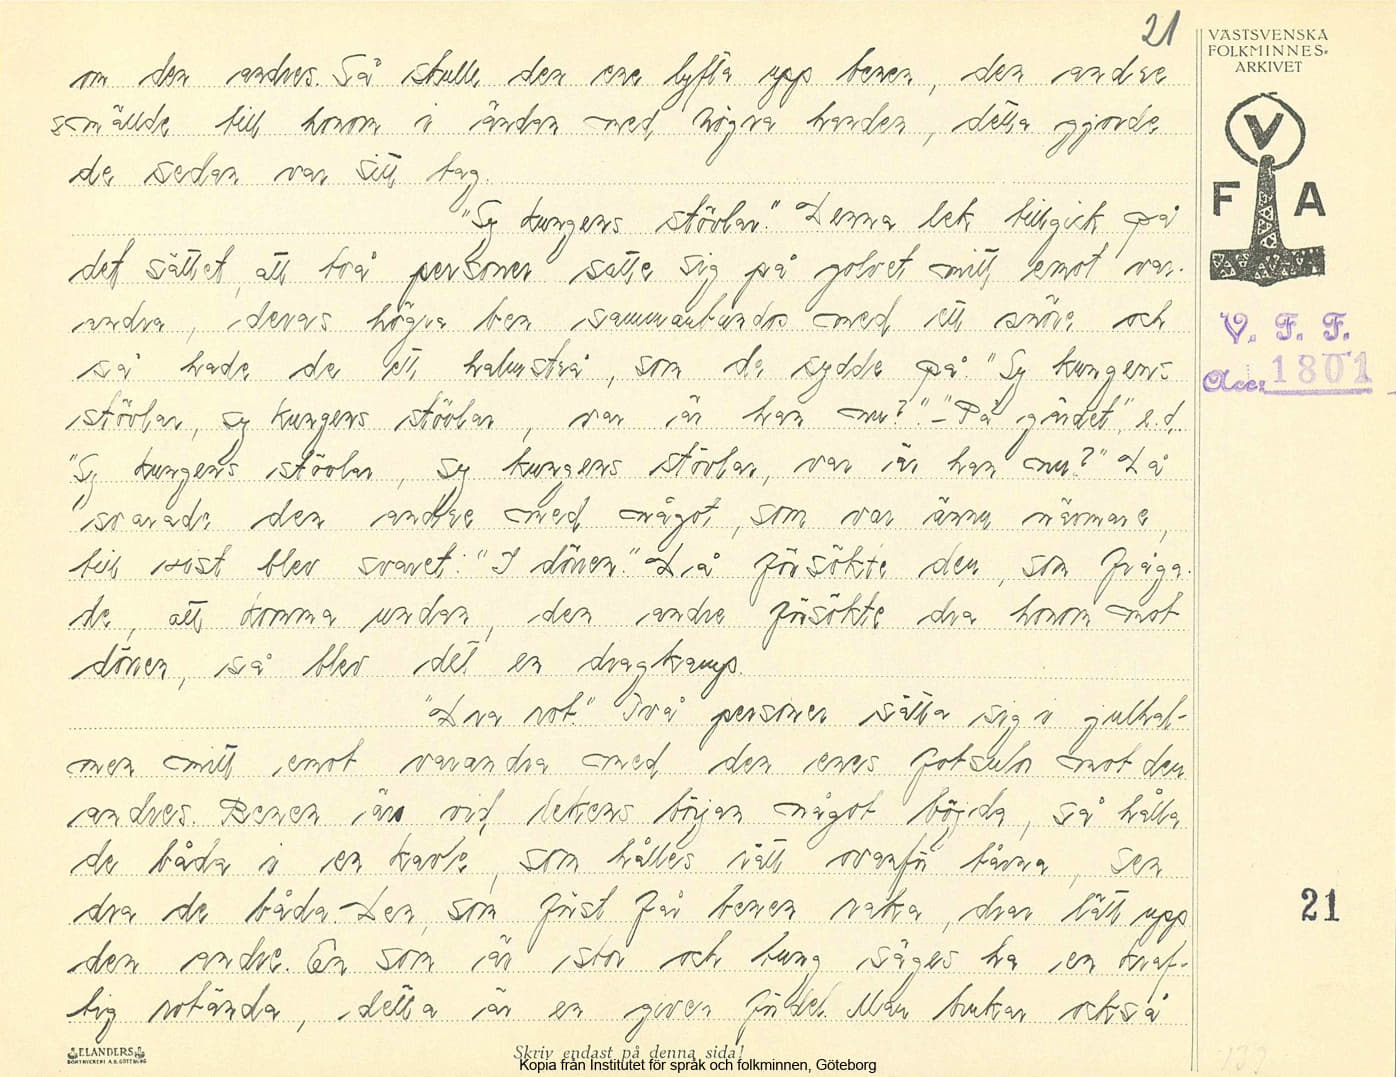 21
om den andres. Så skulle den ene lyfta upp benen, den andre
smällde till honom i ändan med högra handen, detta gjorde
de sedan var sitt tag.
"Sy kungens stövlar." Denna lek tillgick på
det sättet, att två personer satte sig på golvet mitt emot var-
andra, deras högra ben sammanbundos med ett snöre och
så hade de ett halmstrå, som de sydde på. "Sy kungens
stövlar, sy kungens stövlar, var är han nu?" - "På gärdet", e.d.
"Sy kungens stövlar, sy kungens stövlar, var är han nu?" Då
svarade den andre med något, som var ännu närmare,
till sist blev svaret: "I dörren." Då försökte den, som fråga-
de, att komma undan, den andre försökte dra honom mot
dörren, så blev det en dragkamp.
"Dra rot." Två personer sätta sig i julhal-
men mitt emot varandra med den enes fotsulor mot den
andres. Benen äro vid lekens början något böjda, så hålla
de båda i en kavle, som hålles rätt ovanför tårna, sen
dra de båda. Den, som först får benen raka, drar lätt upp
den andre. En som är stor och tung säges ha en kraf-
tig rotända, detta är en given fördel. Man brukar också
VÄSTSVENSKA
FOLKMINNES-
ARKIVET
V
F A
V. F. F.
Acc: 1801
21
ELANDERS
BOKTRYCKERI A.B. GÖTEBORG
Skriv endast på denna sida!
Kopia från Institutet för språk och folkminnen, Göteborg